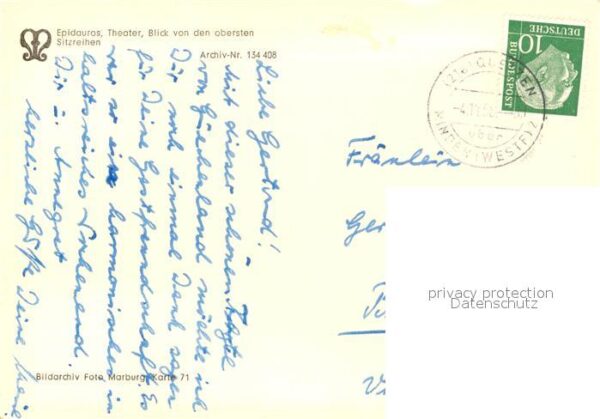 Epidauros, Theater, Blick von den obersten
Sitzreihen
Archiv-Nr. 134 408
Liebe Gertrud!
Mit dieser schönen Karte
von Griechenland möchte ich
Dir noch einmal Dank sagen
für Deine Gastfreundschaft. Es
war so ein harmonisches in-
haltsreiches Wochenend.
Dir u. Annegret
herzliche Grüße Deine
Bildarchiv Foto Marburg, Karte 71
10
DEUTSCHE
BUNDESPOST
über
MINDEN (WESTF)
Fräulein
privacy protection
Datenschutz